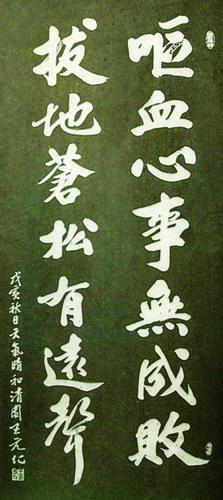 嘔血心事無成敗
拔地蒼松有遠聲
戊亥秋日天氣晴和清園王元化